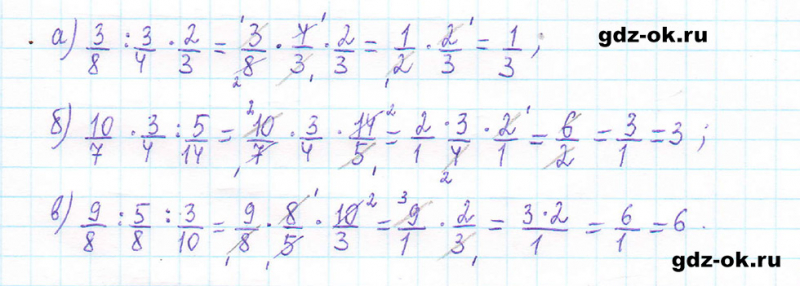 gdz-ok.ru
а) 3/8 : 3/4 · 2/3 = 3/8 · 4/3 · 2/3 = 1/2 · 2/3 = 1/3 ;
б) 10/7 · 3/4 : 5/14 = 10/7 · 3/4 · 14/5 = 2/1 · 3/4 · 2/1 = 6/2 = 3/1 = 3 ;
в) 9/8 : 5/8 : 3/10 = 9/8 · 8/5 · 10/3 = 9/1 · 2/3 = 3·2/1 = 6/1 = 6 .
gdz-ok.ru